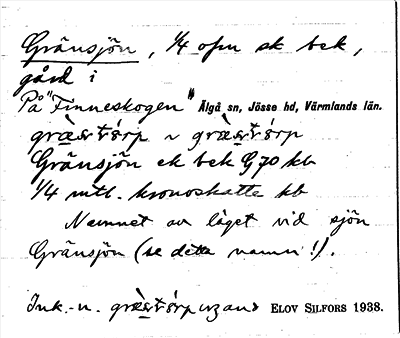 Gränsjön, 1/4 ofm sk bek,
gård i
På "Finneskogen" Älgå sn, Jösse hd, Värmlands län.
Gränsjön ek bek G70 kb
1/4 mtl. kronoskatte kb
Namnet av läget vid sjön
Gränsjön (se detta namn!).
Ink.-n. ELOV SILFORS 1938.